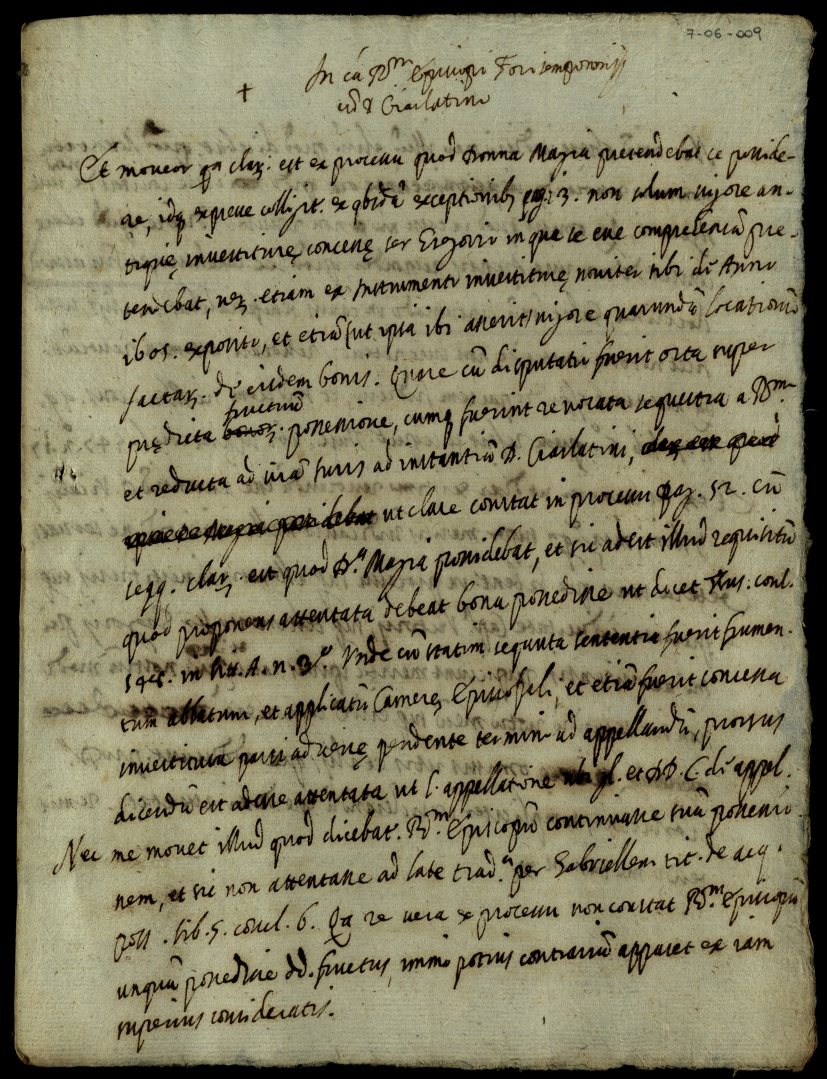 7-06-009
In cá R.m Episcopi Forisemproniij
+
cũ D Ciarlatini
Et moveor qa claȝ. est ex processu quod Donna Maria pretendebat se posside-
re, idq expresse colligit. ex qbsdã exceptionibȝ pag. 3. non solum vigore an-
tiquę investiturę concessę ser Gregorio in qua se esse comprehensã pre-
tendebat, sed etiam ex Instrumento investiturę noviter sibi de Anno
1605. exposito, et etiã (ut ipsa ibi asserit) vigore quarundã locationũ
factaȝ. de eisdem bonis. Quare cũ disputatio fuerit orta super
fructuũ
prędicta possessione, cumq fuerint revocata sequestra a R.m
et reducta ad viam Iuris ad instantiã D. Ciarlatini,
ut clare constat in processu pag. 52. cũ
seqq. claȝ. est quod D.a Maria possidebat, et sic adest illud requisitũ
quod proponens attentata debeat bona possedisse ut docet consl.
in litt. A. n. 3.o Unde cũ statim sequuta sententia fuerit frumen-
tum ablatum, et applicatũ Camerę Episcopali, et etiã fuerit concessa
investitura parti adversę pendente termino ad appellandũ, prorsus
dicendũ est adesse attentata ut l. appellatione gl. et DD. C de appel.
Nec me movet illud quod dicebat. R.m Episcopũ continuasse suã possessio-
nem, et sic non attentasse ad late trad.a per Gabriellem tit. de acq.
poss. lib. 5. concl. 6. Qa re vera ex processu non constat R.m Episcopũ
unquã possedisse dd. fructus, immo potius contrariũ apparet ex iam
superius consideratis.